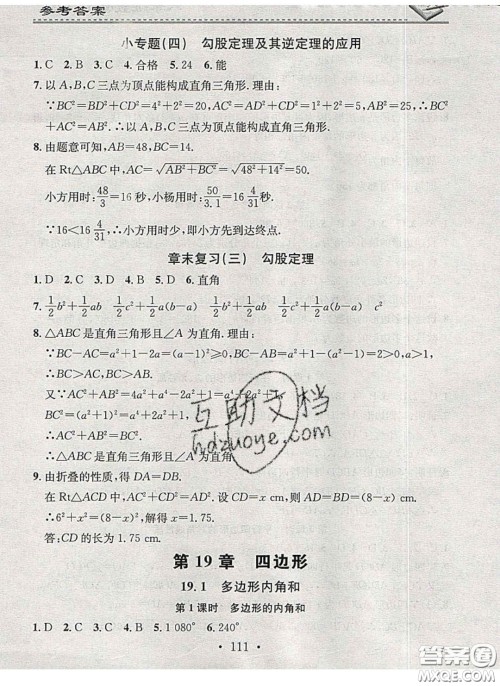 参考答案
小专题(四) 勾股定理及其逆定理的应用
1. C 2. B 3. C 4. 合格 5. 24 6. 能
7. 以 A,B,C 三点为顶点能构成直角三角形. 理由:
∵BC²=BD²+CD²=4²+2²=20,AC²=1²+2²=5,AB²=3²+4²=25,∴BC²+AC²=AB². ∴以 A,B,C 三点为顶点能构成直角三角形.
8. 由题意可知,AB=48,BC=14.
在 Rt△ABC 中,AC=√(AB²+BC²)=√(48²+14²)=50.
小方用时:48/3=16 秒,小杨用时:50/3.1=16 4/31 秒.
∵16<16 4/31,∴小方用时少,即小方先到达终点.
章末复习(三) 勾股定理
1. D 2. C 3. D 4. B 5. D 6. 直角
7. 1/2b²+1/2ab 1/2c²+1/2a(b-a) 1/2b²+1/2ab 1/2c²+1/2a(b-a) c²
8. △ABC 是直角三角形且∠A 为直角. 理由:
∵BC-AC=a²+1-2a=(a-1)²≥0,BC-AB=a²+1-(a²-1)=2>0,a>1,
∴BC>AC,BC>AB.
又∵AC²+AB²=4a²+a⁴-2a²+1=a⁴+2a²+1,
BC²=(a²+1)²=a⁴+2a²+1,
∴AC²+AB²=BC².
∴△ABC 是直角三角形且∠A 为直角.
9. 由折叠的性质,得 DA=DB.
在 Rt△ACD 中,AC²+CD²=AD². 设 CD=x cm,则 AD=BD=(8-x)cm,
∴6²+x²=(8-x)²,解得 x=1.75.
答:CD 的长为 1.75 cm.
第 19 章 四边形
19.1 多边形内角和
第 1 课时 多边形的内角和
1. D 2. C 3. C 4. B 5. 1 080° 6. 240°
· 111 ·
互助文档
hdzuoye.com
答案圈
MXQE.COM